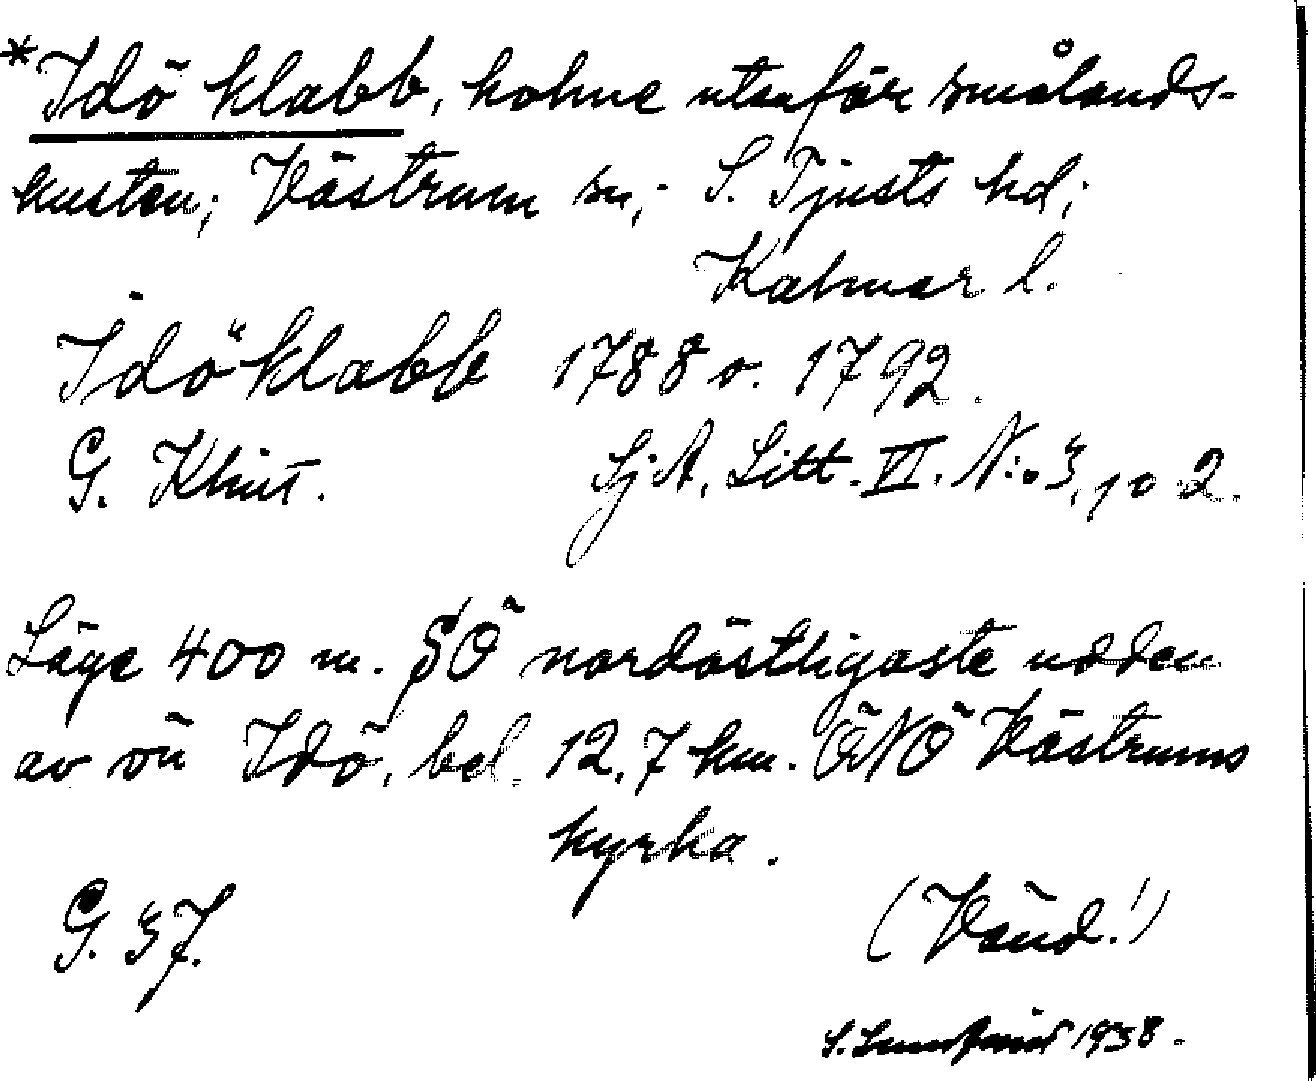 *Idö klabb, holme utanför smålands-
kusten; Västrum sn; S. Tjusts hd;
Kalmar l.
Idö klabb 1788 o. 1792.
G. Klint. SjA, Litt. VI. N:o 3, 10 2.
Läge 400 m. SÖ nordöstligaste udden
av ön Idö, bel. 12,7 km. ÖNÖ Västrums
kyrka.
G. 37.
(Vänd!)
S. 1938.